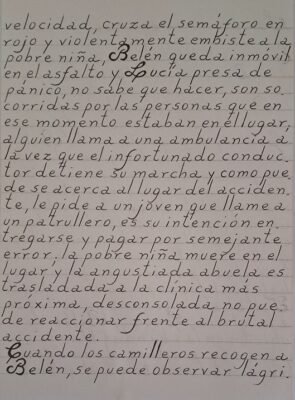 velocidad, cruza el semáforo en
rojo y violentamente embiste a la
pobre niña, Belén queda inmóvil
en el asfalto y Lucía presa de
pánico, no sabe que hacer, son so
corridas por las personas que en
ese momento estaban en el lugar,
alguien llama a una ambulancia a
la vez que el infortunado conduc-
tor detiene su marcha y como pue-
de se acerca al lugar del acciden-
te, le pide a un joven que llame a
un patrullero, es su intención en-
tregarse y pagar por semejante
error, la pobre niña muere en el
lugar y la angustiada abuela es
trasladada a la clínica más
próxima, desconsolada no pue-
de reaccionar frente al brutal
accidente.
Cuando los camilleros recogen a
Belén, se puede observar lágri-